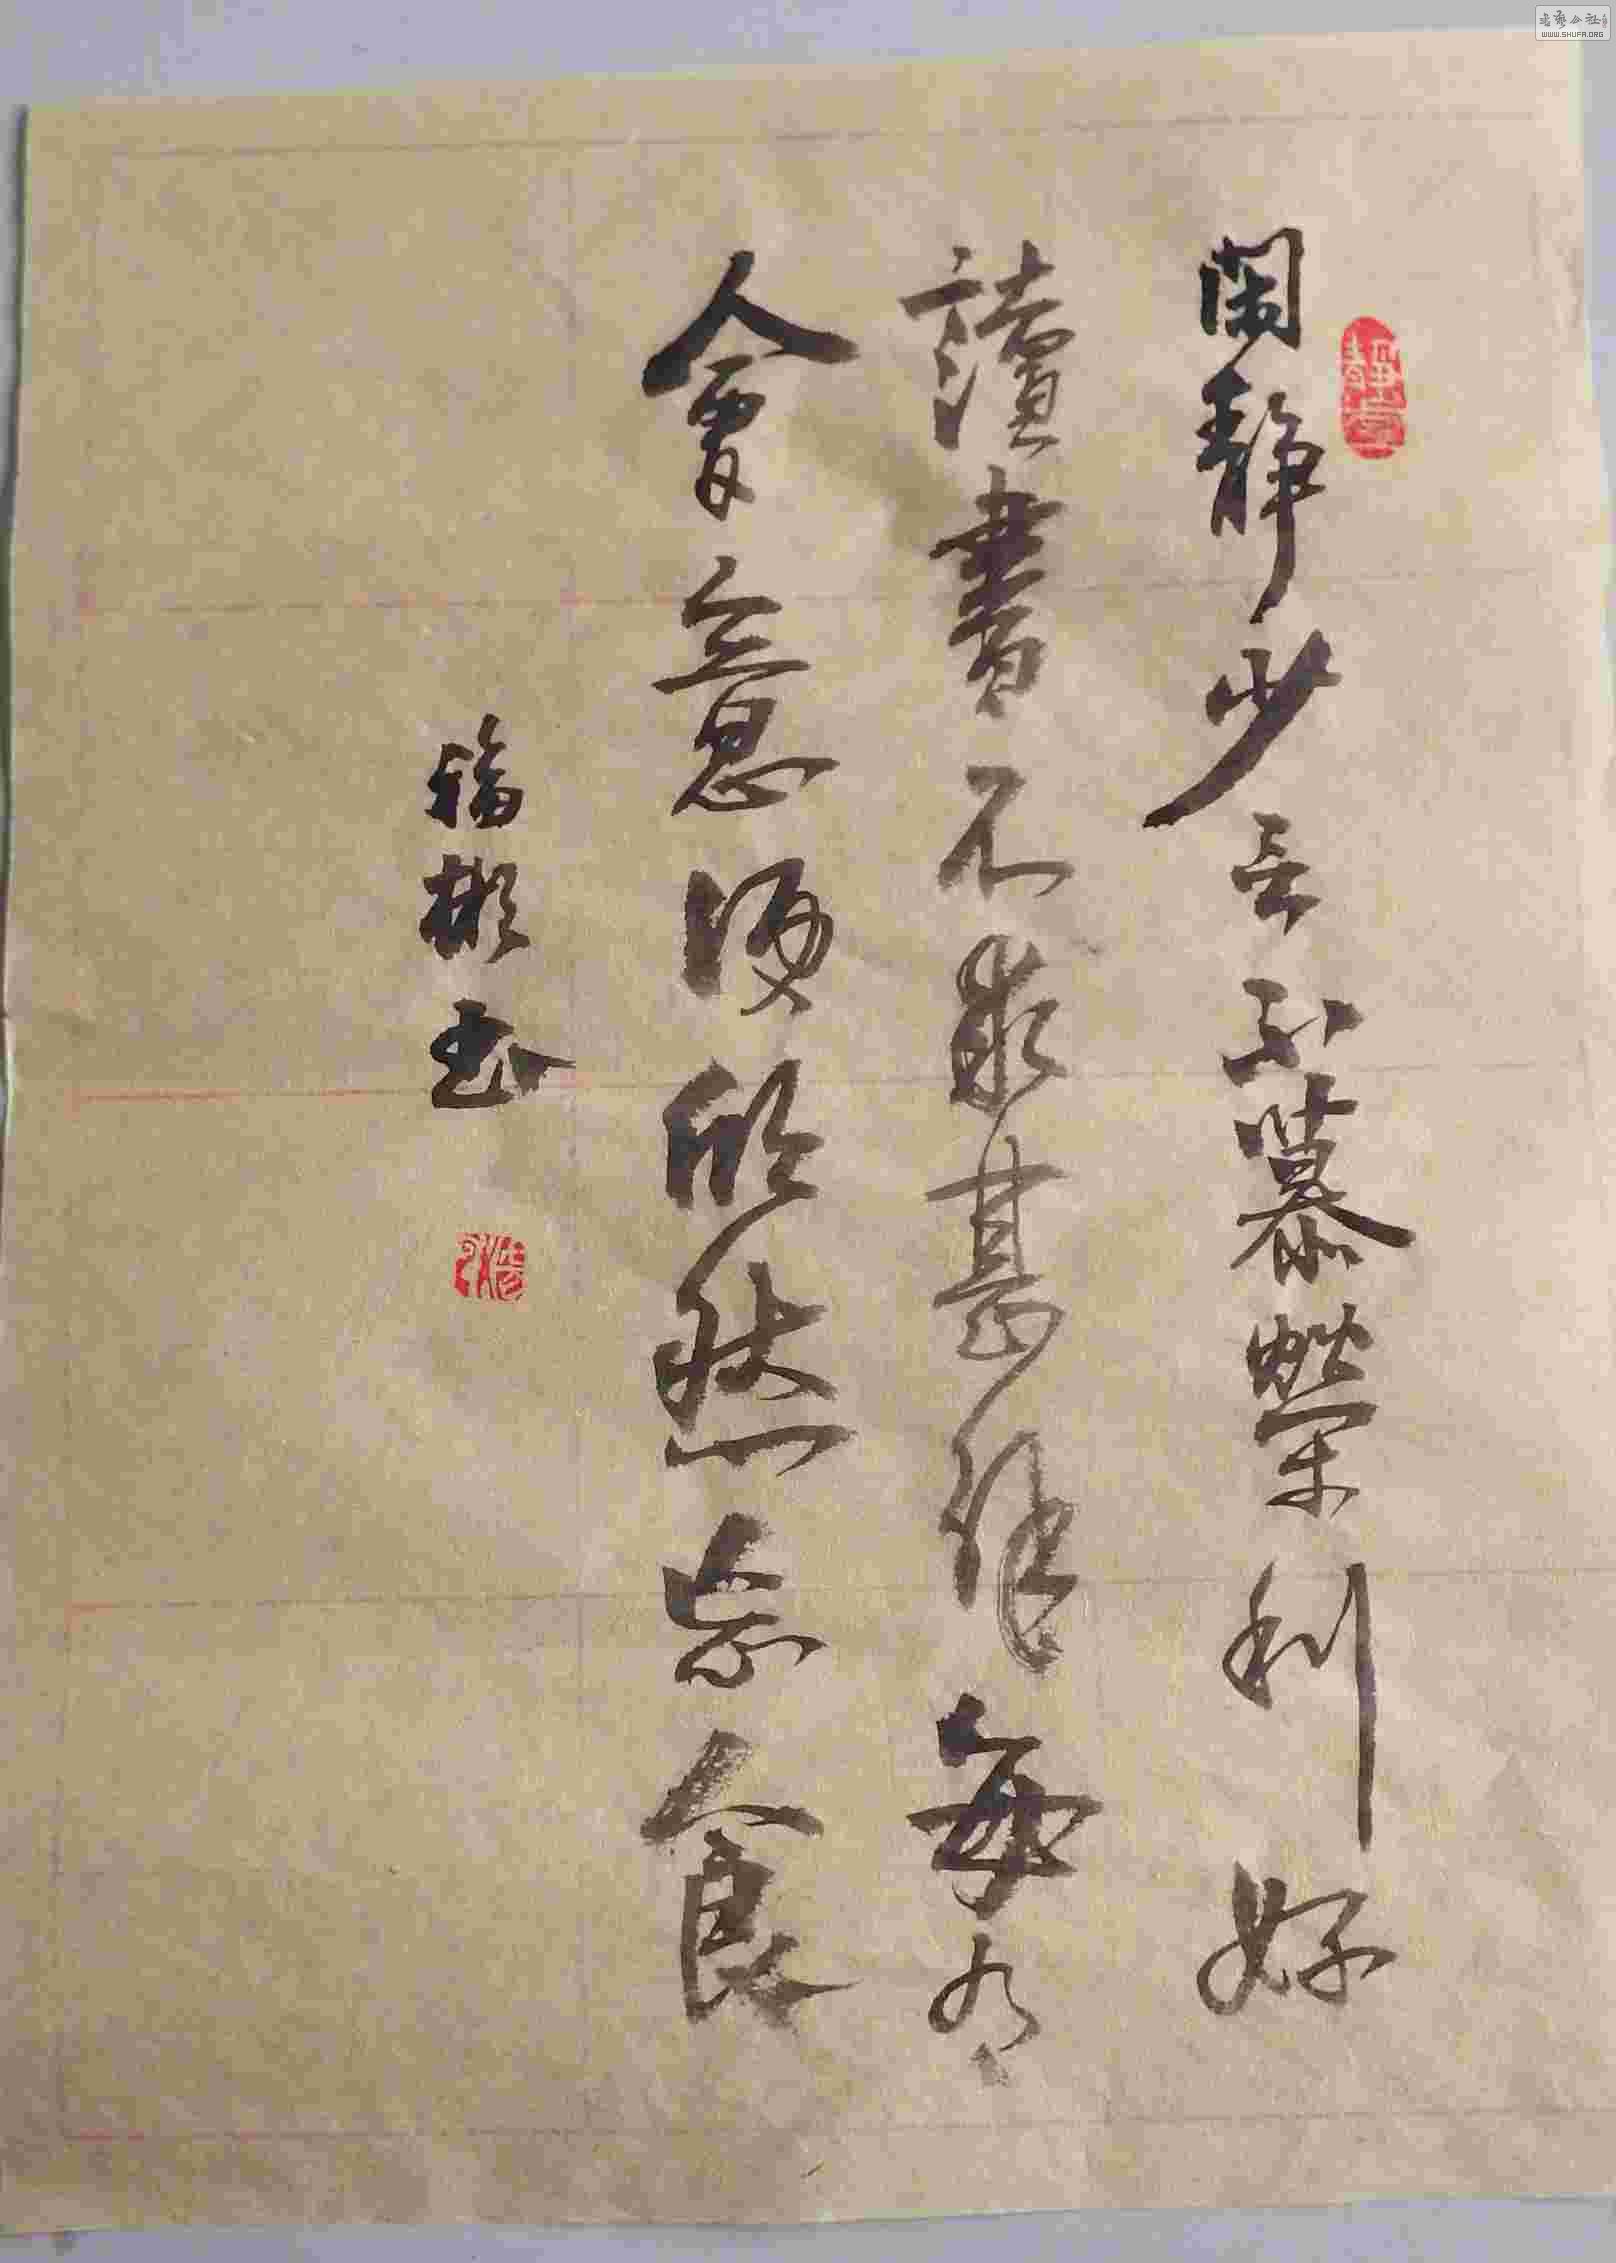 閑靜少言不慕榮利好
讀書不求甚解每有
會意便欣然忘食
彬书
书艺公社
WWW.SHUFA.ORG